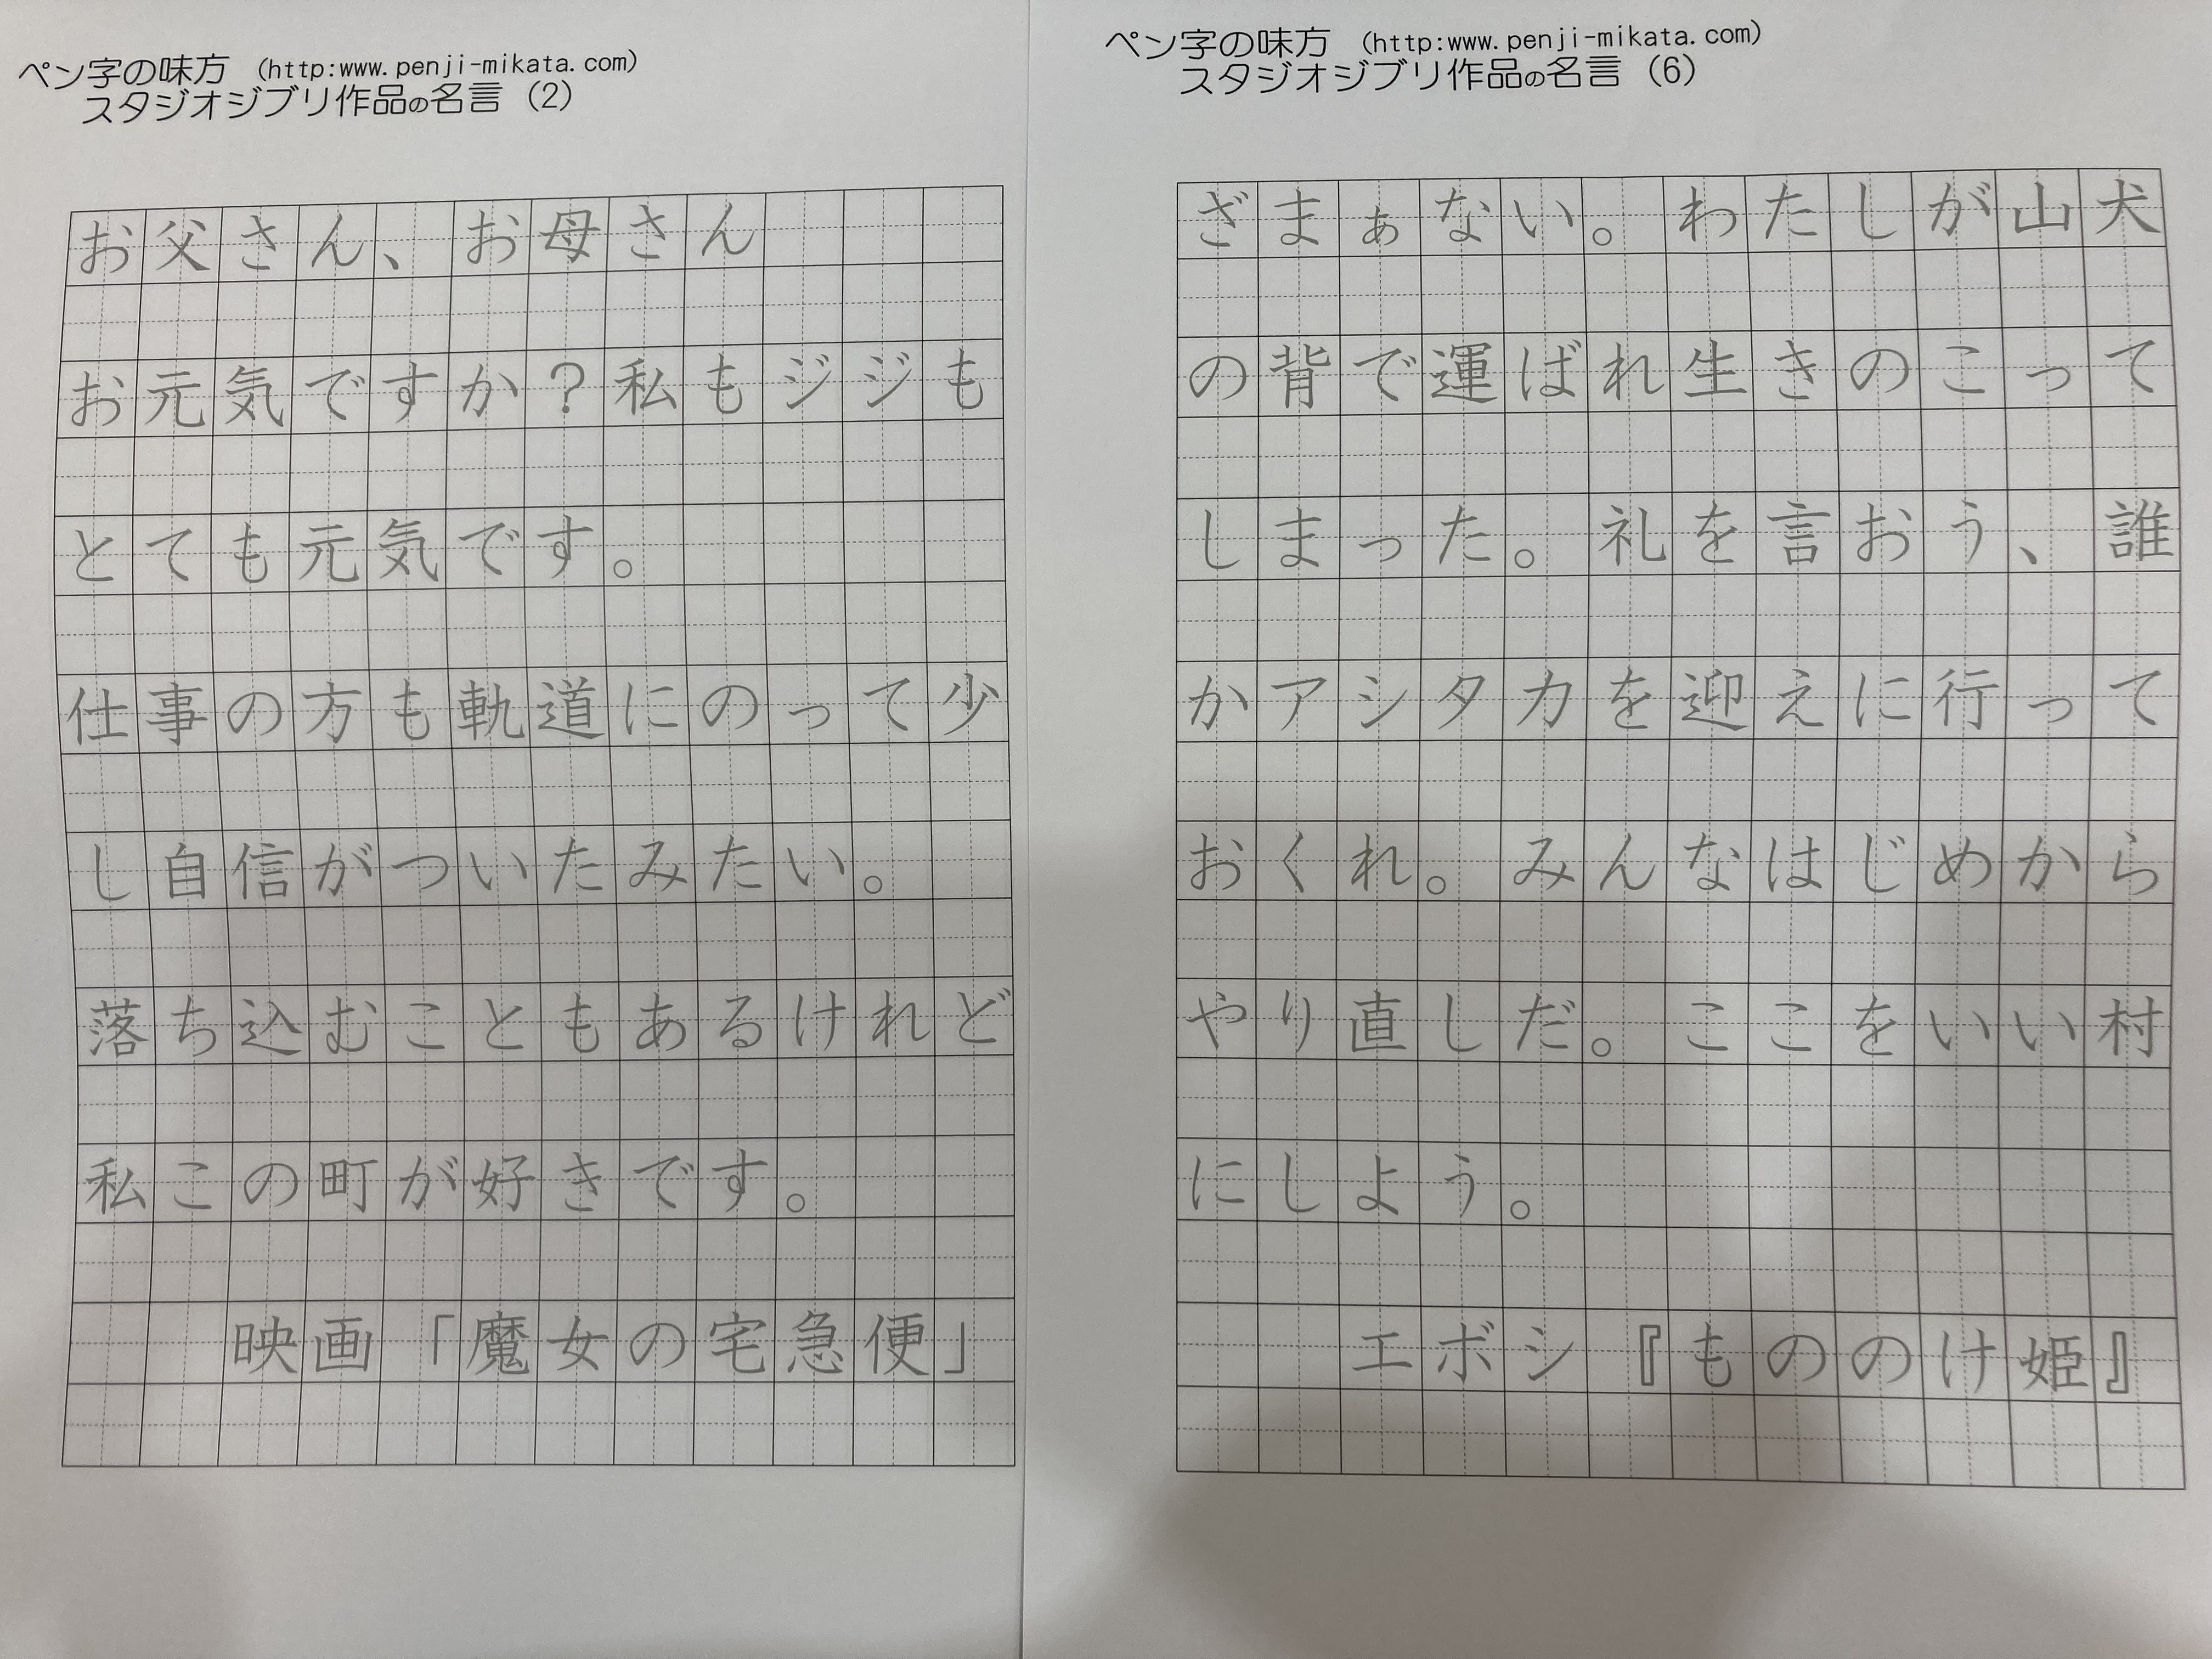 ペン字の味方 (http:www.penji-mikata.com)
スタジオジブリ作品の名言 (2)
お父さん、お母さん
お元気ですか?私もジジも
とても元気です。
仕事の方も軌道にのって少
し自信がついたみたい。
落ち込むこともあるけれど
私この町が好きです。
映画「魔女の宅急便」
ペン字の味方 (http:www.penji-mikata.com)
スタジオジブリ作品の名言 (6)
ざまぁない。わたしが山犬
の背で運ばれ生きのこって
しまった。礼を言おう、誰
かアシタカを迎えに行って
おくれ。みんなはじめから
やり直しだ。ここをいい村
にしよう。
エボシ『もののけ姫』